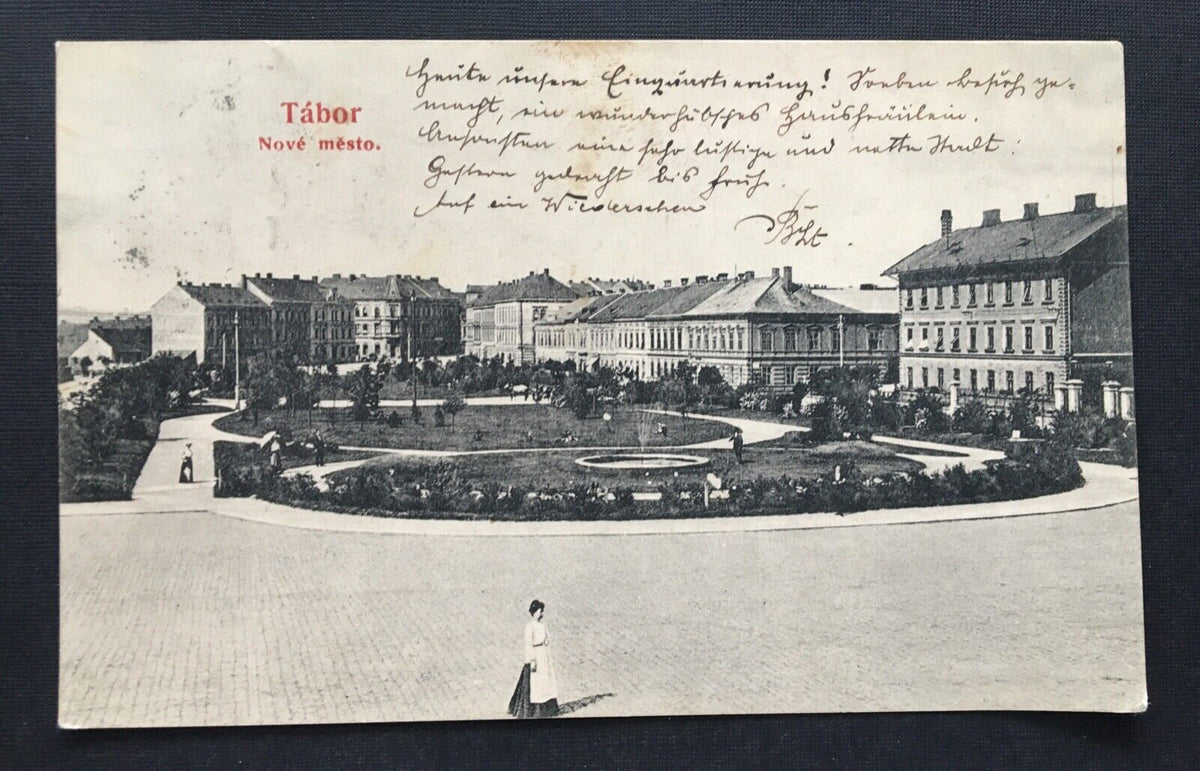 Tábor
Nové město.
Heute unsere Einquartierung! Soeben besuch ge-
macht, ein wunderhübsches Hausfräulein.
Ansonsten eine sehr lustige und nette Stadt.
Gestern gedraht bis früh.
Auf ein Wiedersehen